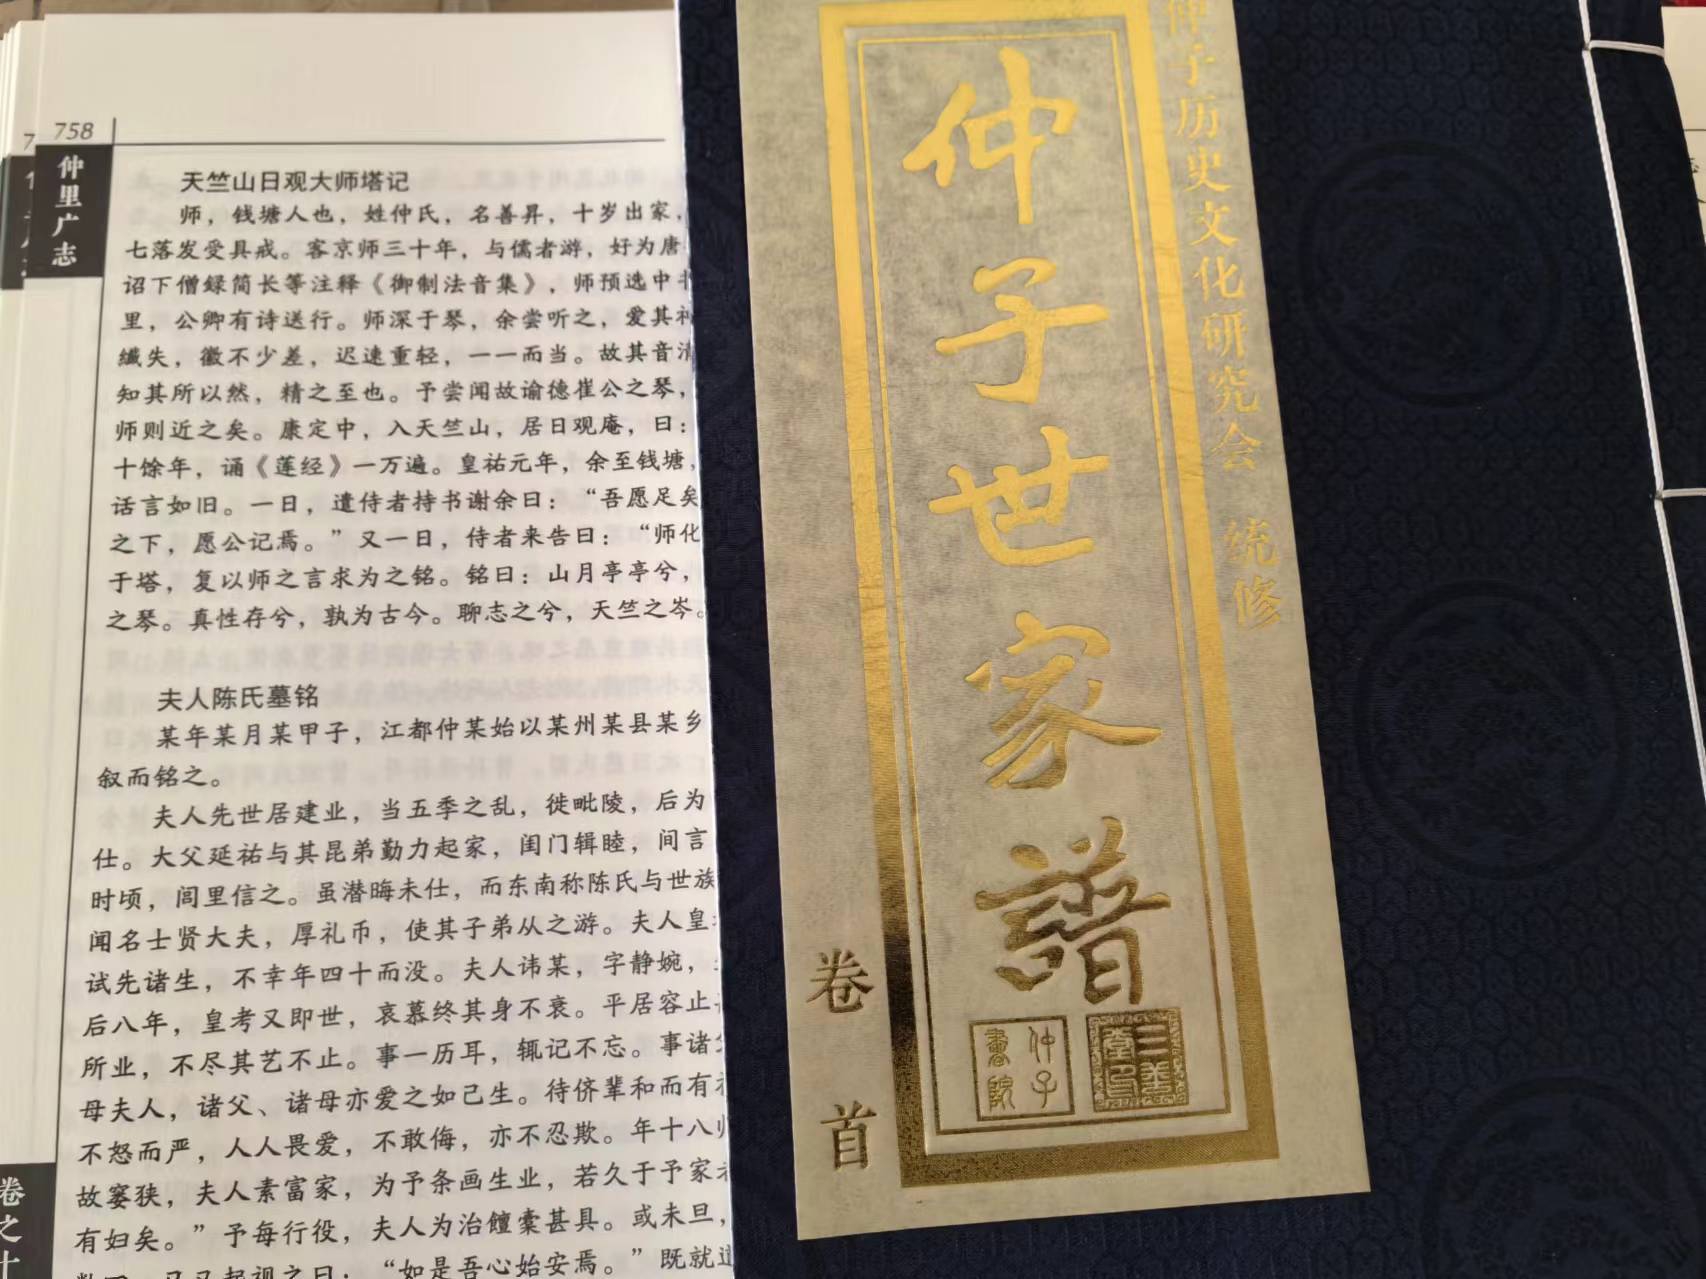 758
仲里广志
天竺山日观大师塔记
师，钱塘人也，姓仲氏，名善昇，十岁出家，
七落发受具戒。客京师三十年，与儒者游，好为唐
诏下僧録简长等注释《御制法音集》，师预选中书
里，公卿有诗送行。师深于琴，余尝听之，爱其神
纎失，徽不少差，迟速重轻，一一而当。故其音清
知其所以然，精之至也。予尝闻故谕德崔公之琴，
师则近之矣。康定中，入天竺山，居日观庵，曰：
十馀年，诵《莲经》一万遍。皇祐元年，余至钱塘，
话言如旧。一日，遣侍者持书谢余曰：“吾愿足矣
之下，愿公记焉。”又一日，侍者来告曰：“师化
于塔，复以师之言求为之铭。铭曰：山月亭亭兮，
之琴。真性存兮，孰为古今。聊志之兮，天竺之岑。
夫人陈氏墓铭
某年某月某甲子，江都仲某始以某州某县某乡
叙而铭之。
夫人先世居建业，当五季之乱，徙毗陵，后为
仕。大父延祐与其昆弟勤力起家，闺门辑睦，间言
时顷，闾里信之。虽潜晦未仕，而东南称陈氏与世族
闻名士贤大夫，厚礼币，使其子弟从之游。夫人皇
试先诸生，不幸年四十而没。夫人讳某，字静婉，
后八年，皇考又即世，哀慕终其身不衰。平居容止
所业，不尽其艺不止。事一历耳，辄记不忘。事诸父
母夫人，诸父、诸母亦爱之如己生。待侪辈和而有
不怒而严，人人畏爱，不敢侮，亦不忍欺。年十八归
故窭狭，夫人素富家，为予条画生业，若久于予家者
有妇矣。”予每行役，夫人为治饘橐甚具。或未旦，
起视之曰：“如是吾心始安焉。”既就道
卷之十
仲子历史文化研究会 统修
仲子世家譜
卷首
三善堂印
仲子書院